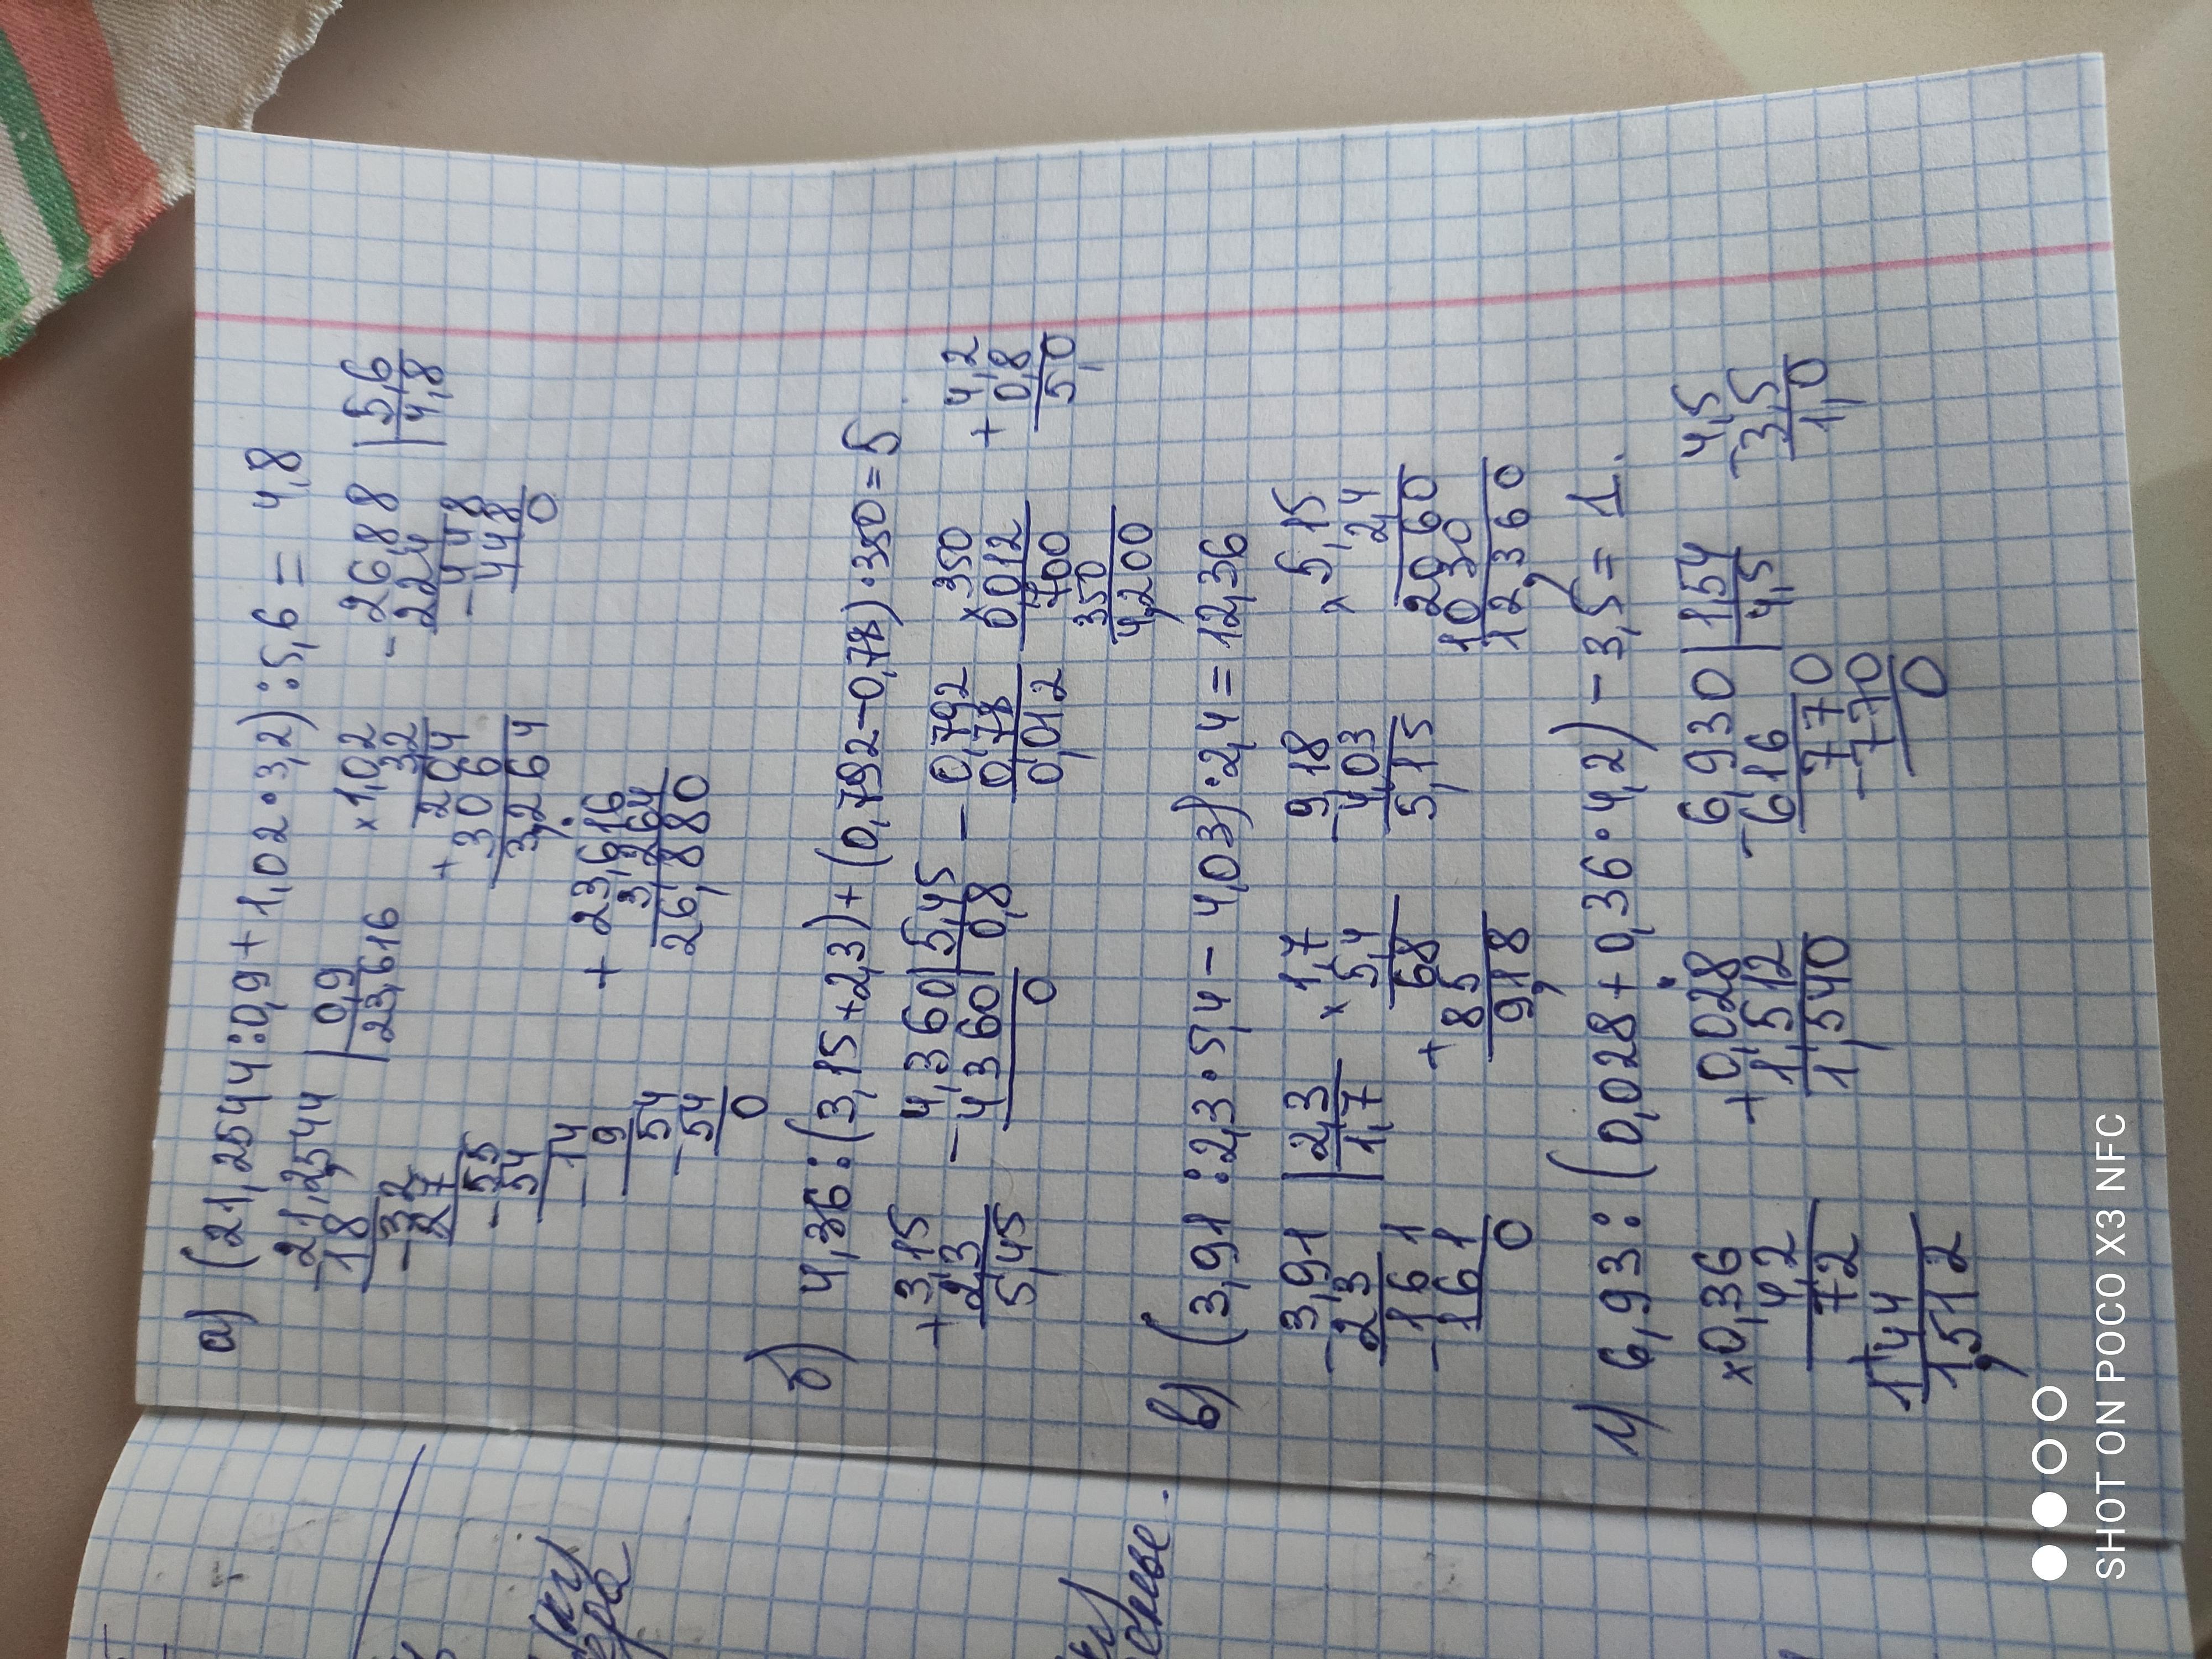 а) (21,2544:0,9+1,02·3,2):5,6 = 4,8
-21,2544 |0,9 ×1,02 -26,88 |5,6
18 23,616 32 224 4,8
-32 204 -448
27 +306 448
-55 3,264 0
54
-14 +23,616
9 3,264
54 26,880
-54
0
б) 4,36:(3,15+2,3)+(0,792-0,78)·350=5
+3,15 -4,360|5,45 -0,792 ×350 +4,2
2,3 4360|0,8 0,78 0,012 0,8
5,45 0 0,012 700 5,0
350
4,200
в) (3,91:2,3·5,4-4,03)·2,4=12,36
-3,91 |2,3 ×1,7 -9,18 ×5,15
23 1,7 5,4 4,03 2,4
-161 68 5,15 2060
161 +85 1030
0 9,18 12,360
г) 6,93:(0,028+0,36·4,2)-3,5=1.
×0,36 +0,028 -6,930|1,54 -4,5
4,2 1,512 616 4,5 3,5
72 1,540 770 1,0
144 -770
1,512 0
SHOT ON POCO X3 NFC